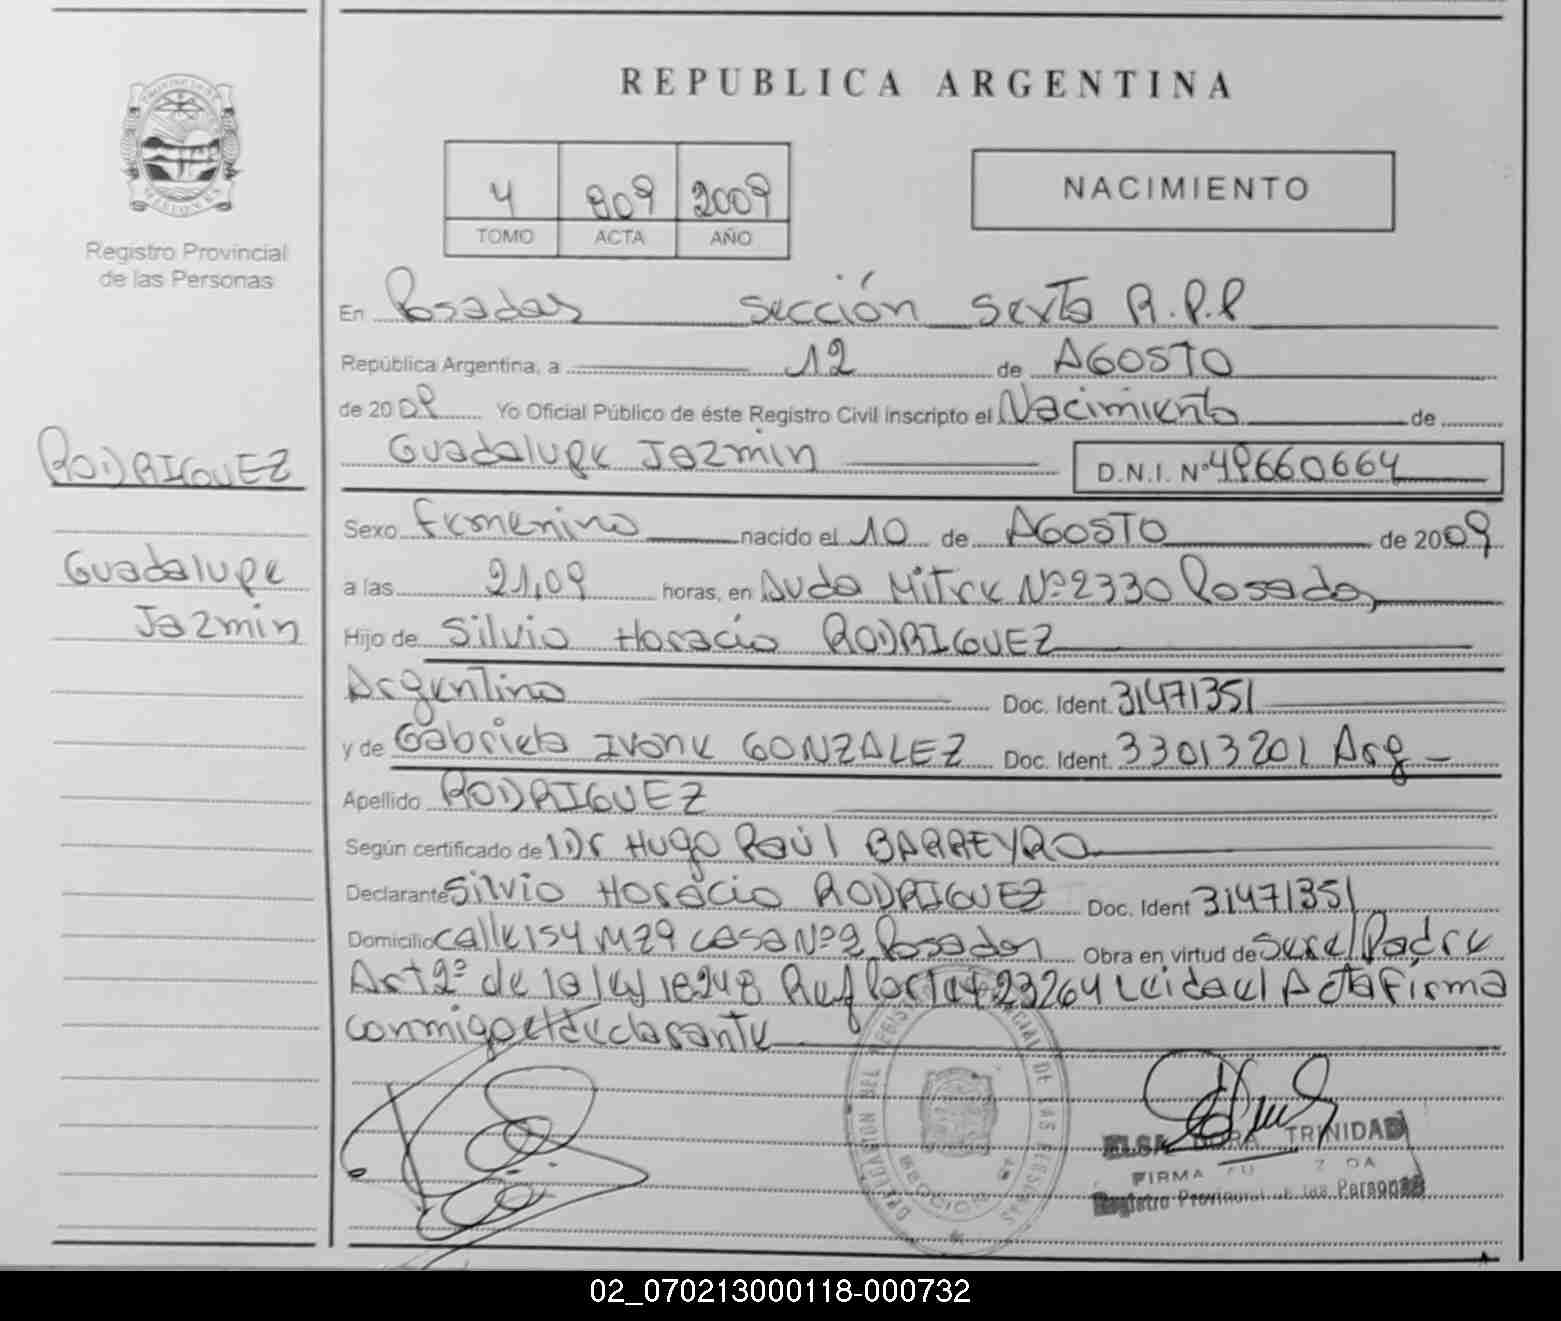 REPUBLICA ARGENTINA
PROVINCIA DE
MISIONES
Registro Provincial
de las Personas
4 809 2009
TOMO ACTA AÑO
NACIMIENTO
En Posadas sección sexta R.P.P
República Argentina, a 12 de AGOSTO
de 2009 Yo Oficial Público de éste Registro Civil inscripto el Nacimiento de
Guadalupe Jazmin D.N.I. Nº 49660664
RODRIGUEZ
Guadalupe
Jazmin
Sexo Femenino nacido el 10 de AGOSTO de 2009
a las 21,09 horas, en Avda Mitre Nº 2330 Posadas
Hijo de Silvio Horacio RODRIGUEZ
Argentino Doc. Ident. 31471351
y de Gabriela Ivone GONZALEZ Doc. Ident. 33013201 Arg
Apellido RODRIGUEZ
Según certificado de Dr Hugo Raúl BARREYRO
Declarante Silvio Horacio RODRIGUEZ Doc. Ident 31471351
Domicilio calle 154 M29 casa Nº 2 Posadas Obra en virtud de ser el Padre
Art 2º de la ley 18248 Ref por ley 23264 Leida el Acta Firma
conmigo el declarante
DELEGACION DEL REGISTRO PROVINCIAL DE LAS PERSONAS
SECCION 6ª
ELSA DORA TRINIDAD
FIRMA
Registro Provincial de las Personas
02_070213000118-000732